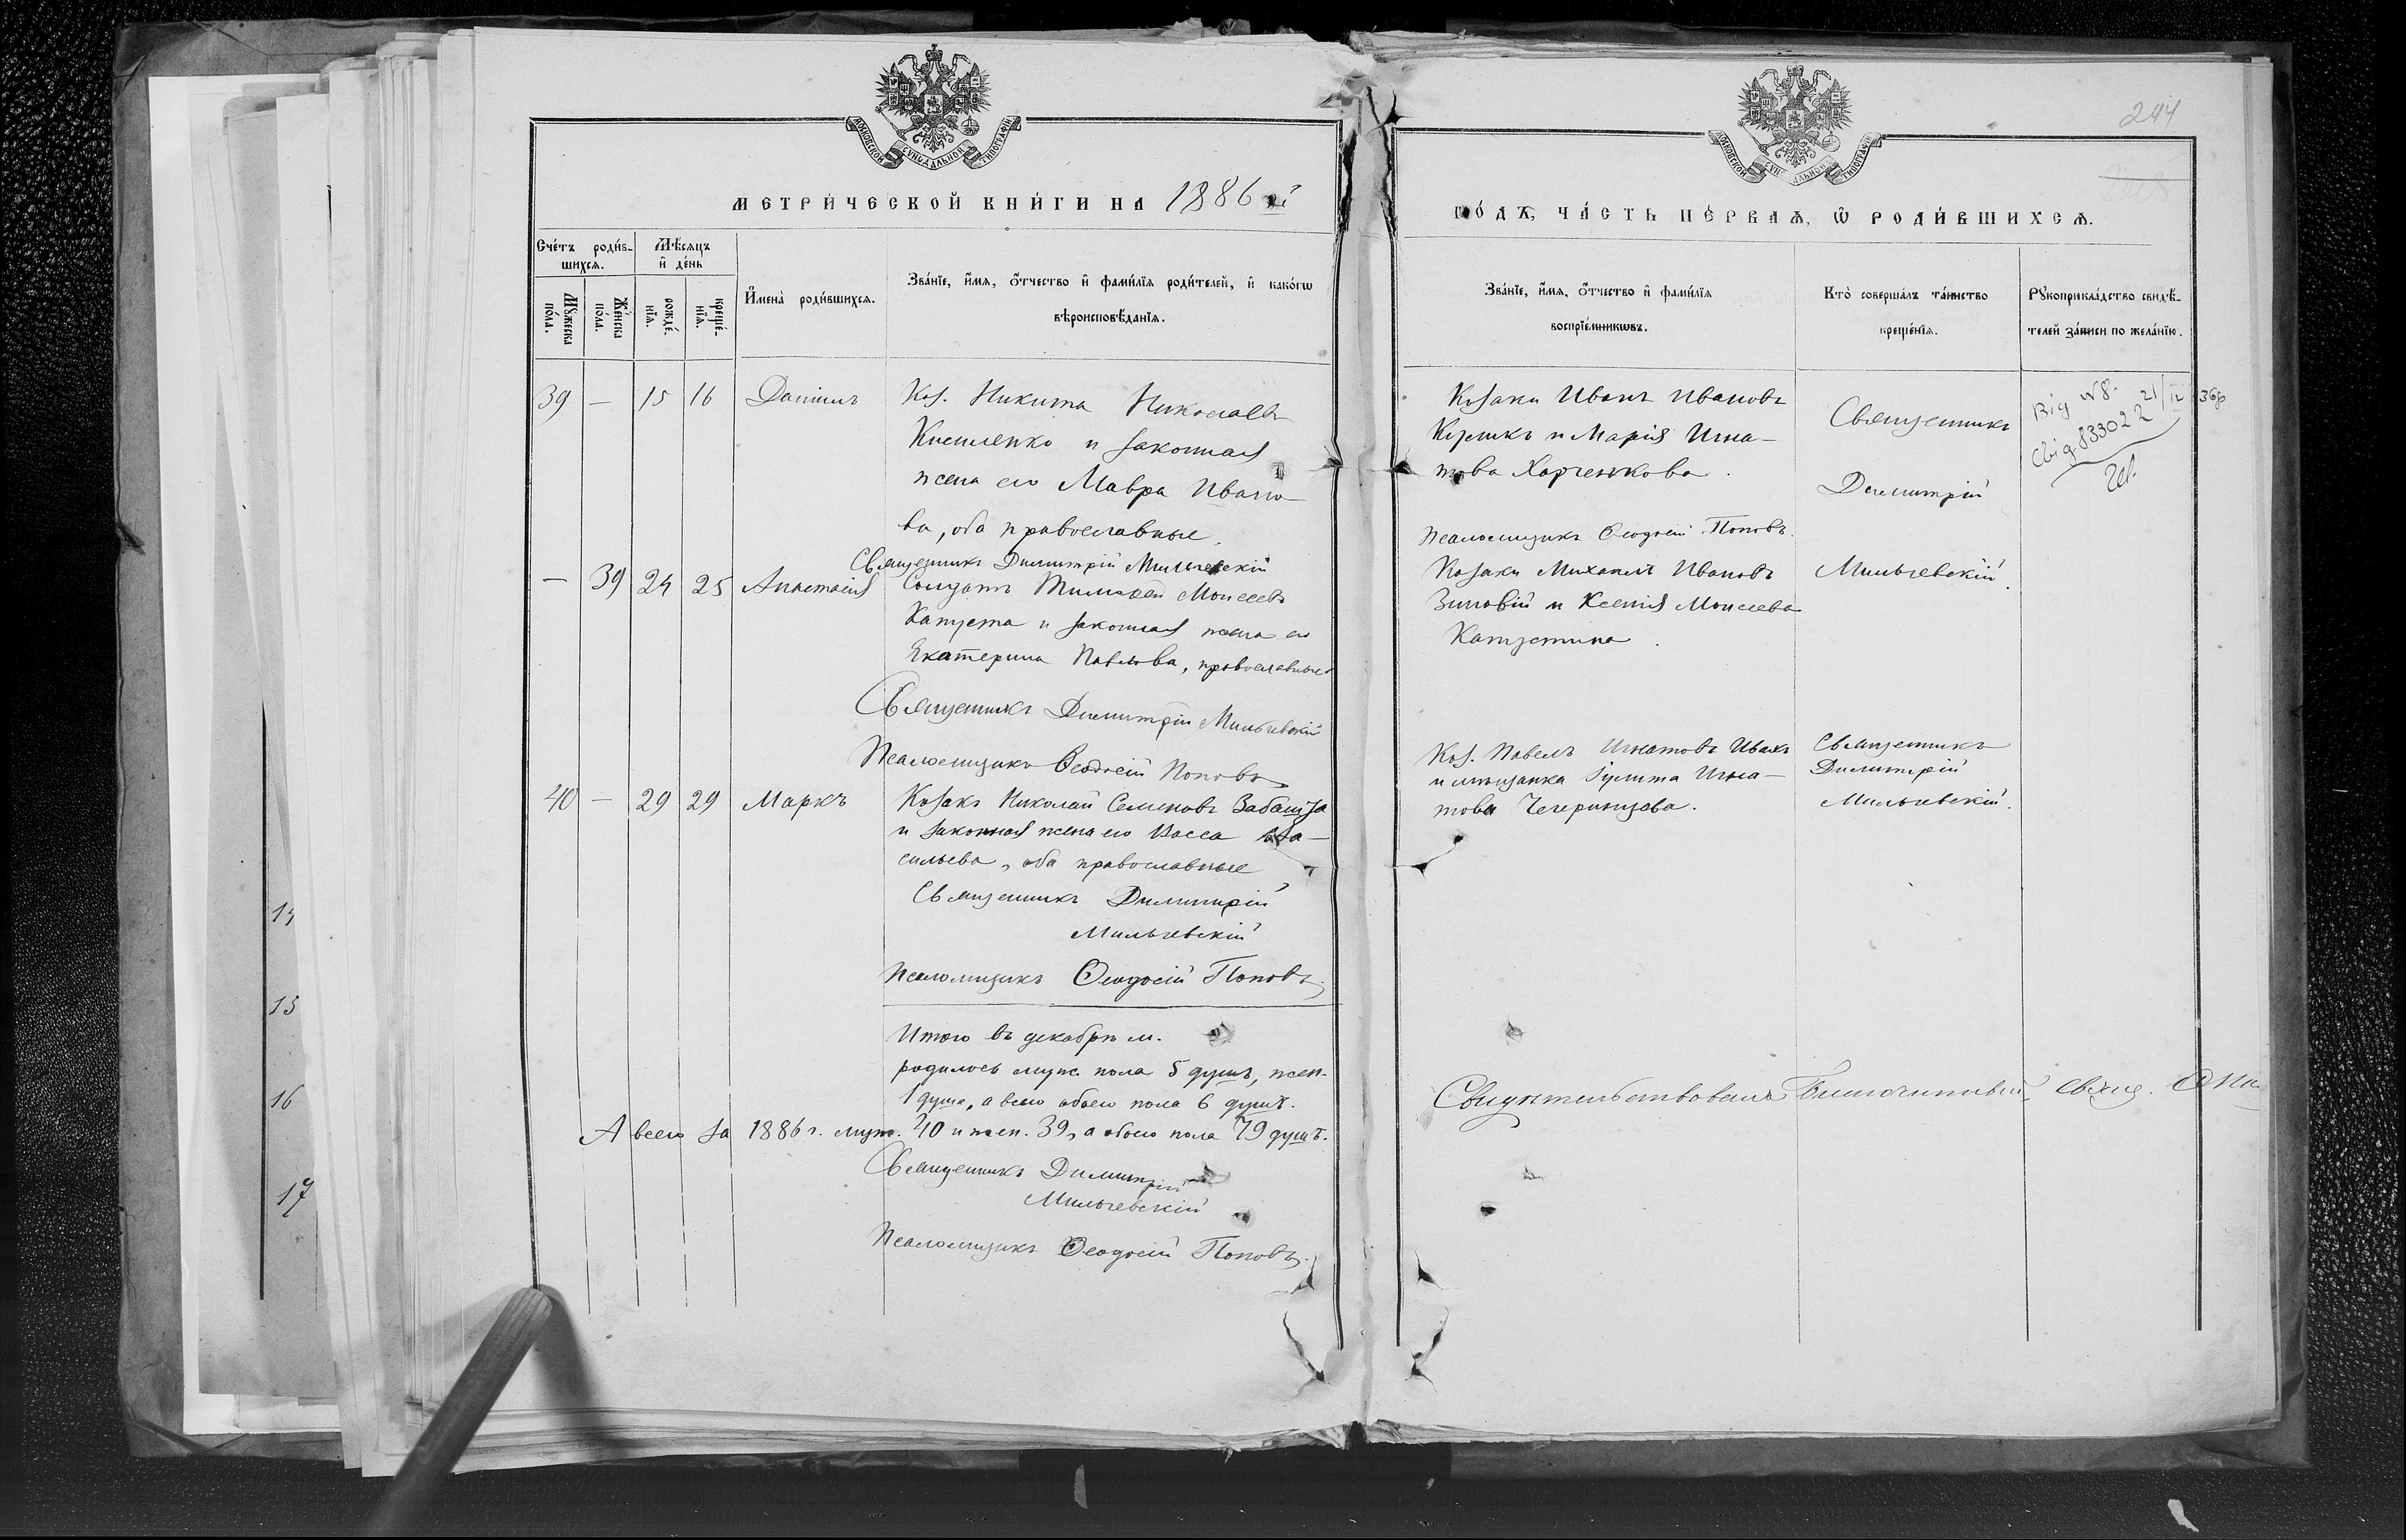 МОСКОВСКОЙ СѴНОДАЛЬНОЙ ТИПОГРАФІИ
МЕТРИ́ЧЕСКОЙ КНИ́ГИ НА 1886 й
Сче́тъ роди́в-
шихсѧ.
Мѣ́сѧцъ
и҆ де́нь
Мꙋ́жеска
по́ла.
Же́нска
по́ла.
рожде́-
нїѧ.
креще́-
нїѧ.
И҆мена̀ роди́вшихсѧ.
Зва́нїе, и҆́мѧ, ѻ҆́тчество и҆ фами́лїѧ роди́телей, и҆ како́гѡ
вѣроисповѣ́данїѧ.
39 — 15 16 Даніилъ Коз. Никита Николаевъ
Костенко и законная
жена его Мавра Ивано-
ва, оба православные.
Священникъ Димитрій Мильчевскій
— 39 24 25 Анастасія Солдатъ Тимофей Моисеевъ
Капуста и законная жена его
Екатерина Павлова, православные
Священникъ Димитрій Мильчевскій
Псаломщикъ Ѳеодосій Поповъ
40 — 29 29 Маркъ Козакъ Николай Семеновъ Забашта
и законная жена его Васса Ва-
сильева, оба православные
Священникъ Димитрій
Мильчевскій
Псаломщикъ Ѳеодосій Поповъ.
Итого въ декабрѣ м.
родилось муж. пола 5 душъ, жен.
1 душа, а всего обоего пола 6 душъ.
А всего за 1886 г. муж. 40 и жен. 39, а обоего пола 79 душъ.
Священникъ Димитрій
Мильчевскій
Псаломщикъ Ѳеодосій Поповъ.
15
16
17
244
МОСКОВСКОЙ СѴНОДАЛЬНОЙ ТИПОГРАФІИ
ГО́ДЪ, ЧА́СТЬ ПЕ́РВАѦ, Ѡ҆ РОДИ́ВШИХСѦ.
Зва́нїе, и҆́мѧ, ѻ҆́тчество и҆ фами́лїѧ
воспрїе́мникѡвъ.
Кто̀ соверша́лъ та́инство
креще́нїѧ.
Рꙋкоприкла́дство свидѣ́-
телей за́писи по жела́нїю.
Козаки Иванъ Ивановъ
и Марія Игна-
това Харченкова.
Псаломщикъ Ѳеодосій Поповъ.
Козаки Михаилъ Ивановъ
Зиновій и Ксенія Моисеева
Капустина.
Коз. Павелъ Игнатовъ Ивахъ
и мѣщанка Іулита Игна-
това Чегринцова.
Священникъ
Димитрій
Мильчевскій.
Священникъ
Димитрій
Мильчевскій.
Від №8. 21/II 36р
Свід 833022
Свидѣтельствовалъ Благочинный, свящ.